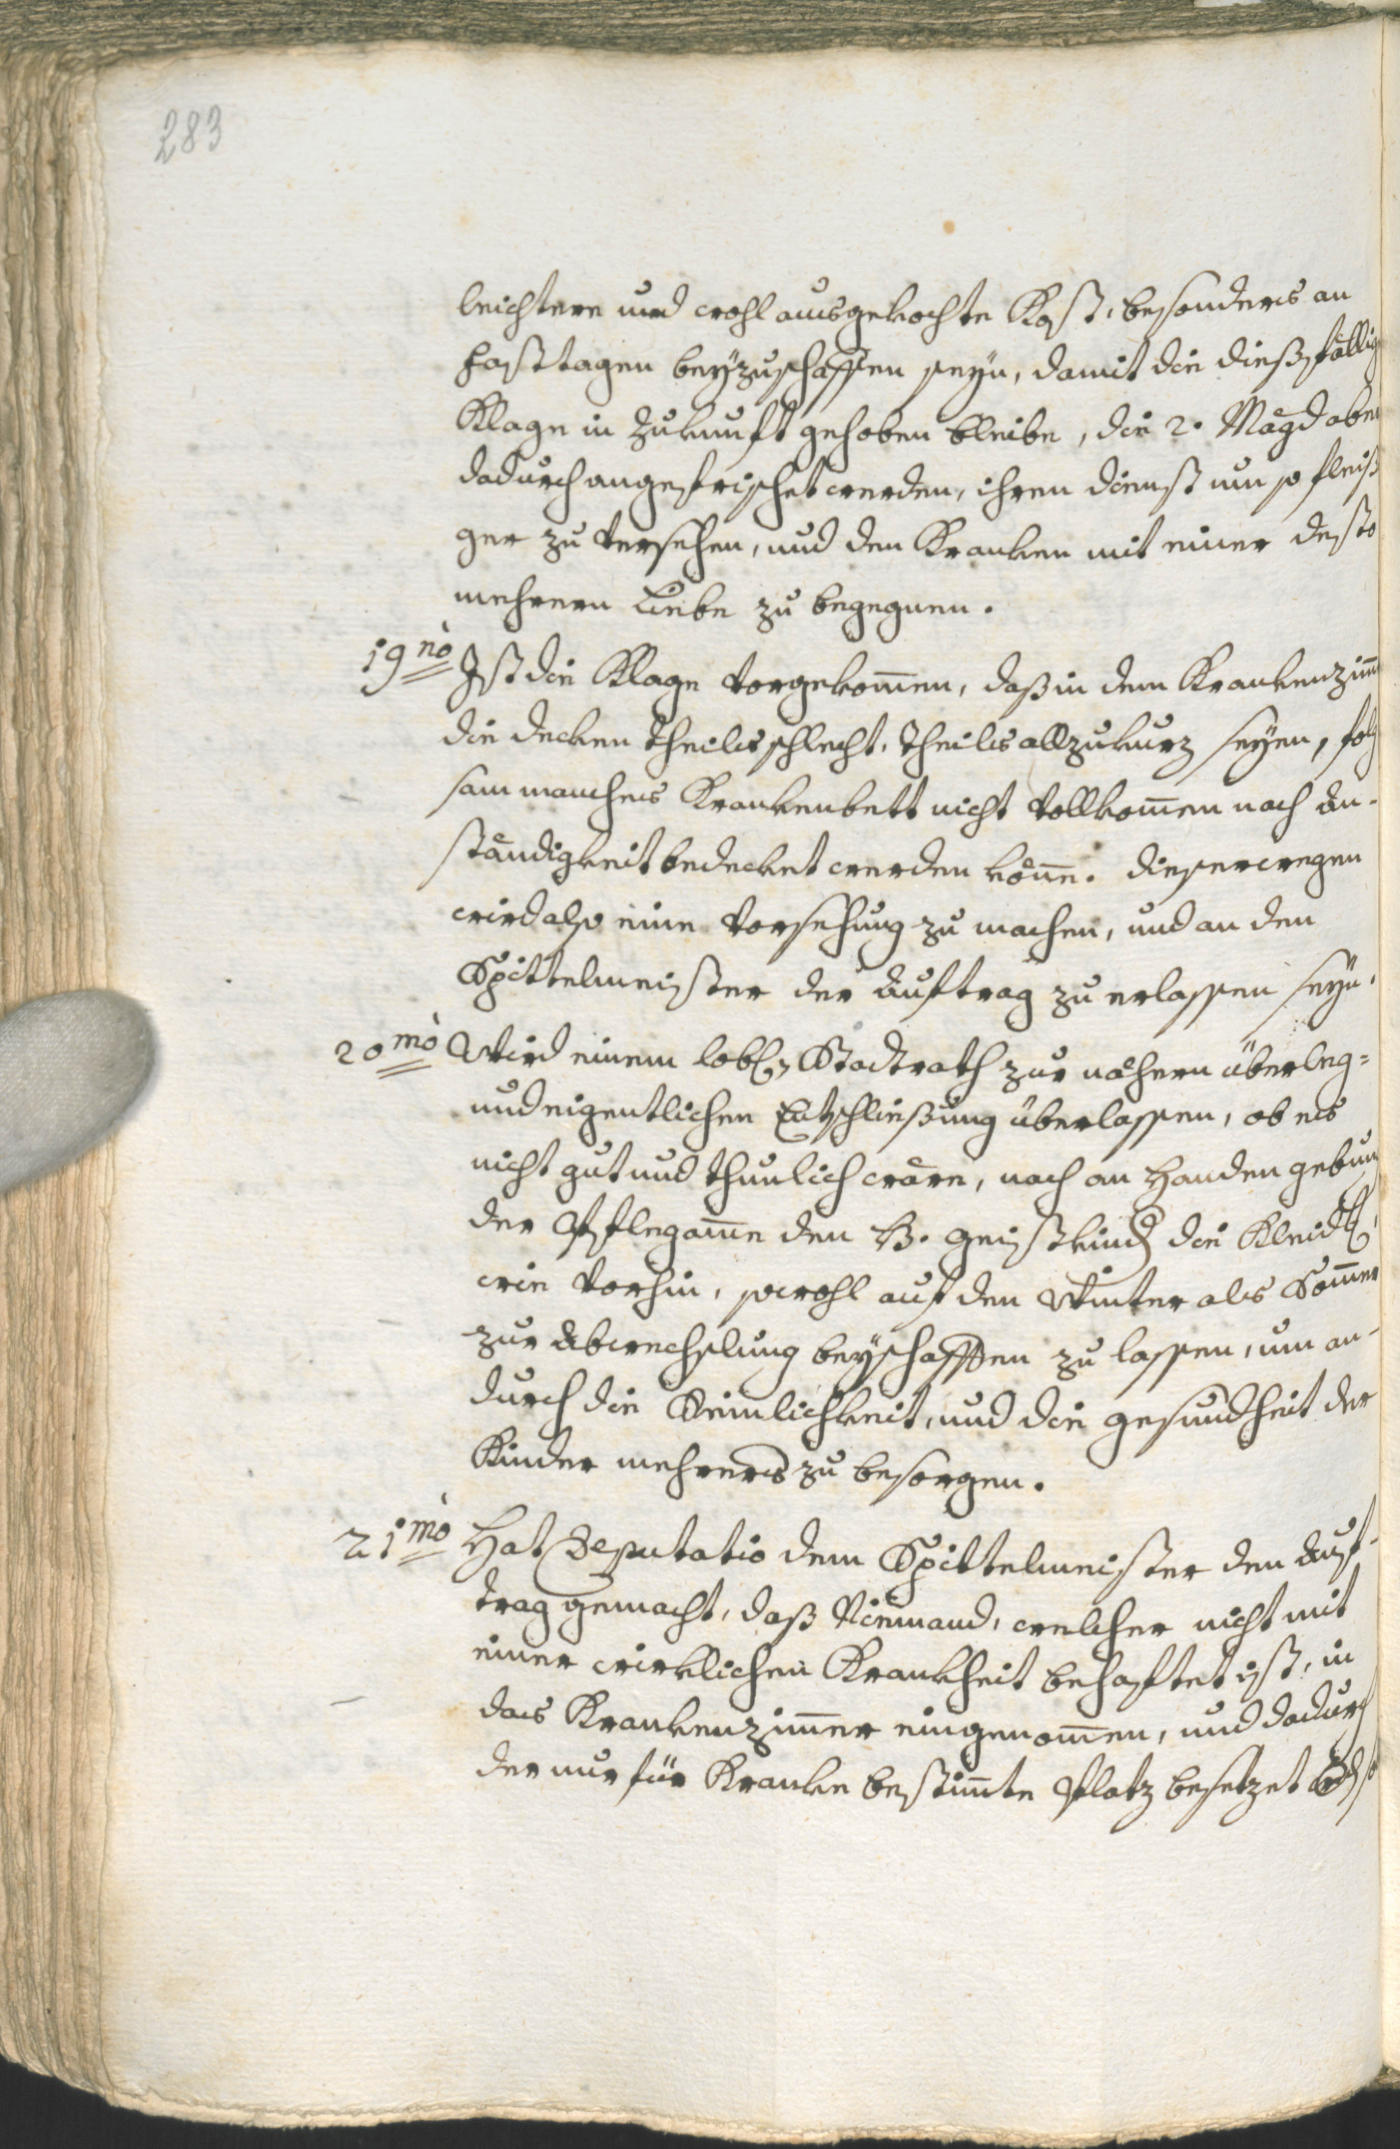 283
leichtere und wohl ausgekochte Kost, besonders an
Fasttagen beyzuschaffen seyn, damit die dießfällig
Klage in Zukunft gehoben bleibe, die 2. Mägd aber
dadurch angefrischet werden, ihren Dienst um so fleiß
ger zu versehen, und den Kranken mit einer desto
mehrern Liebe zu begegnen.
19no Ist die Klage vorgekom̄en, daß in dem Krankenzim̄
die Decken theils schlecht, theils allzukurz seyen, folg
sam manches Krankenbett nicht vollkom̄en nach An-
ständigkeit bedecket werden kön̄e. Dieserwegen
wird also eine Vorsehung zu machen, und an den
Spittelmeister der Auftrag zu erlassen seyn.
20mo Wird einem löbl. Stadtrath zur nähern überleg=
und eigentlichen Entschließung überlassen, ob es
nicht gut und thunlich wäre, nach an Handen gebung
der Pflegam̄e den H. Geistkind die Kleidl,
wie vorhin, sowohl auf den Winter als Som̄er
zur Abwechslung beyschaffen zu lassen, um an-
durch die Reinlichkeit, und die Gesundheit der
Kinder mehrers zu besorgen.
21mo Hat Deputatio dem Spittelmeister den Auf-
trag gemacht, daß Niemand, welcher nicht mit
einer wirklichen Krankheit behaftet ist, in
das Krankenzim̄er eingenom̄en, und dadurch
der nur für Kranke bestim̄te Platz besetzet